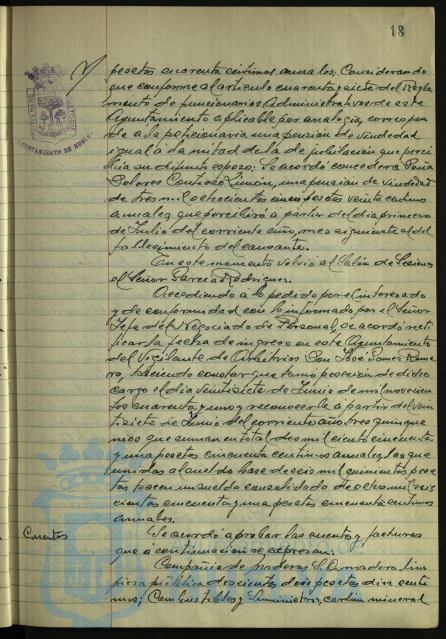 18
pesetas cuarenta centimos anuales; Considerando
que conforme al artículo cuarenta y siete del Regla
mento de funcionarios Administrativos de este
Ayuntamiento aplicable por analogía, correspon
de a la peticionaria una pensión de viudedad
igual a la mitad de la de jubilación que perci
bía su difunto esposo; Se acordó conceder a Doña
Dolores Limón, una pensión de viudedad
de tres mil ochocientas cinco pesetas veinte centimos
anuales que percibirá a partir del día primero
de Julio del corriente año, mes siguiente al del
fallecimiento del causante.
En este momento volvió al Salón de Sesiones
el Señor García Rodríguez.
Accediendo a lo pedido por el interesado
y de conformidad con lo informado por el Señor
Jefe del Negociado de Personal, se acordó recti
ficar la fecha de ingreso en este Ayuntamiento
del Vigilante de Arbitrios Don José Gomez Rome
ro, haciendo constar que tomo posesión de dicho
cargo el día veintisiete de Junio de mil novecien
tos cuarenta y uno, y reconocerle a partir del vein
tisiete de Junio del corriente año, tres quinque
nios que suman en total dos mil ciento cincuenta
y una pesetas cincuenta centimos anuales, las que
unidas al sueldo base de seis mil quinientas pese
tas hacen un sueldo consolidado de ocho mil seis
cientas cincuenta y una pesetas cincuenta centimos
anuales.
Cuentas
Se acordó aprobar las cuentas y facturas
que a continuación se expresan:
Compañía de maderas, La madera, lim
pieza pública doscientas doce pesetas diez centi
mos; Combustibles y Suministros, carbón mineral